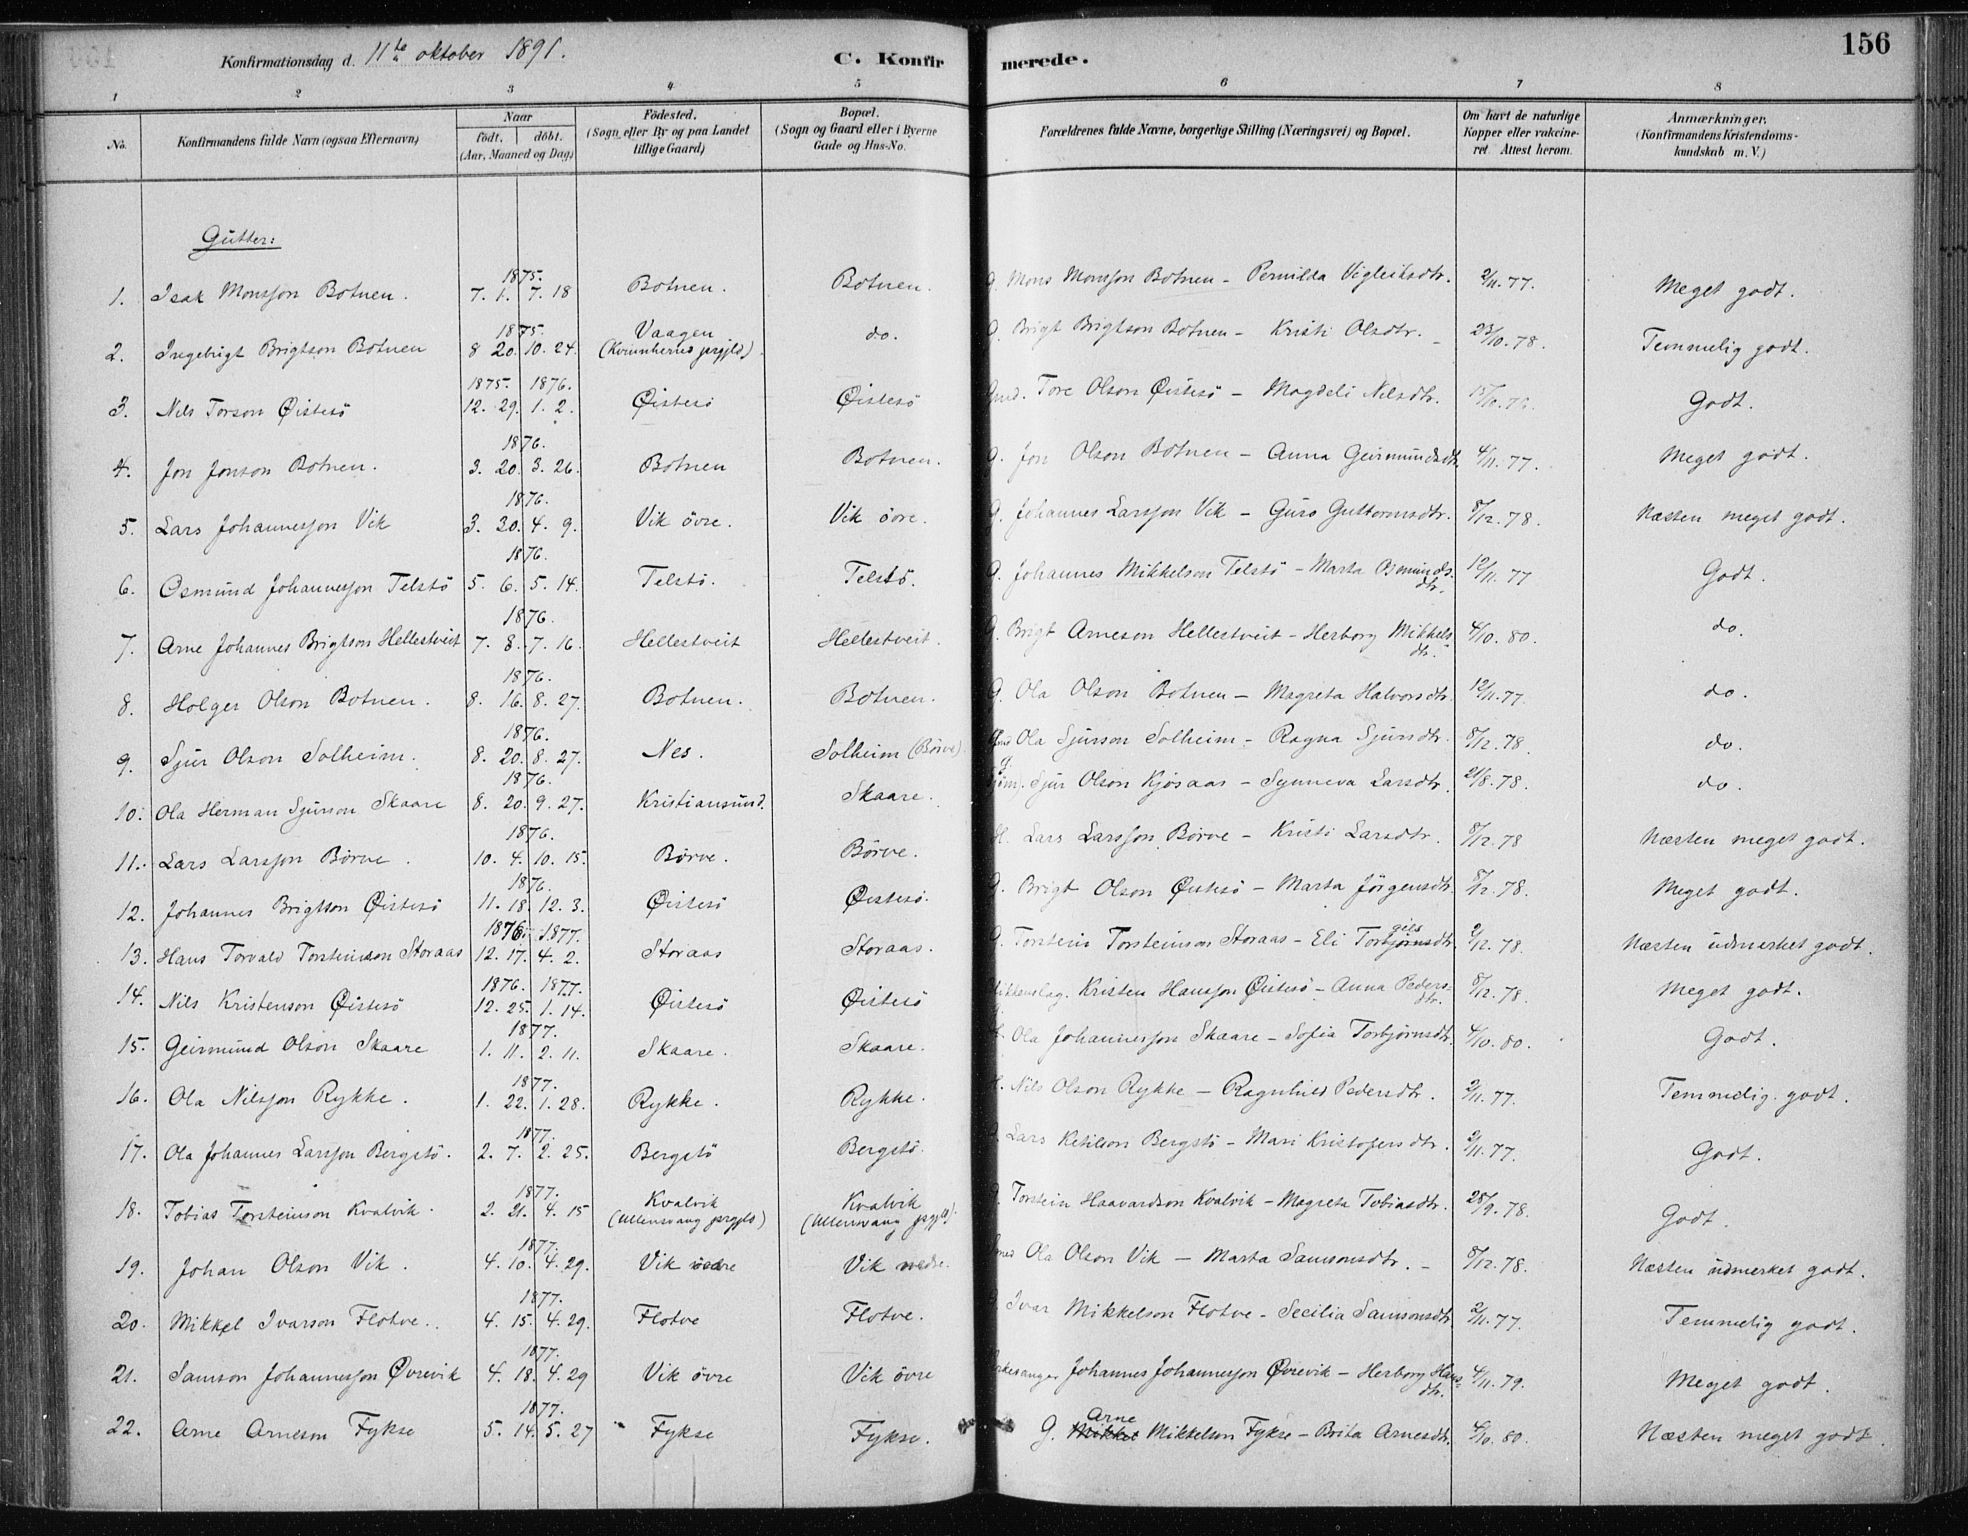 Konfirmationsdag d. 11te oktober 1891.
C. Konfirmerede.
156
1 2 3 4 5 6 7 8
No. Konfirmandens fulde Navn (ogsaa Efternavn) Naar födt. döbt. (Aar, Maaned og Dag) Födested. (Sogn eller By og paa Landet tillige Gaard) Bopæl. (Sogn og Gaard eller i Byerne Gade og Hus-No. Forældrenes fulde Navne, borgerlige Stilling (Næringsvei) og Bopæl. Om havt de naturlige Kopper eller vakcineret Attest herom. Anmærkninger. (Konfirmandens Kristendomskundskab m. V.)
Gutter:
1. Isak Monsson Botnen. 1875. 7. 1. 7. 18 Botnen. Botnen. G. Mons Monsson Botnen – Pernilla Vigleiksdtr. 2/11. 77. Meget godt.
2. Ingebrigt Brigtson Botnen 1875. 8 20. 10. 24. Vaagen (Kvinnherred prgjld) do. G. Brigt Brigtson Botnen – Kristi Olsdtr. 23/10. 78. Temmelig godt.
3. Nils Torson Øistesö 1875. 12. 29. 1876. 1. 2. Øistesö Øistesö Gmd. Tore Olson Øistesö – Magdeli Nilsdtr. Godt.
4. Jon Jonson Botnen. 1876. 3. 20. 3. 26. Botnen Botnen. G. Jon Olson Botnen – Anna Geirmundsdtr. 4/11. 77. Meget godt.
5. Lars Johannesson Vik 1876. 3. 30. 4. 9. Vik övre. Vik övre. G. Johannes Larsson Vik – Guro Guttormsdtr. 8/12. 78. Næsten meget godt.
6. Osmund Johannesson Telstö 1876. 5. 6. 5. 14. Telstö. Telstö. G. Johannes Mikkelson Telstö – Marta Osmundsdtr. 12/11. 77 Godt.
7. Arne Johannes Brigtson Hellestveit 1876. 7. 8. 7. 16. Hellestveit Hellestveit. G. Brigt Arneson Hellestveit – Herborg Mikkelsdtr. 4/10. 80. do.
8. Holger Olson Botnen. 1876. 8. 16. 8. 27. Botnen. Botnen. G. Ola Olson Botnen – Magreta Halvorsdtr. 12/11. 77. do.
9. Sjur Olson Solheim. 1876. 8. 20. 8. 27. Nes. Solheim (Börve) Ola Sjurson Solheim – Ragna Sjursdtr. 8/12. 78. do.
10. Ola Herman Sjurson Skaare 1876. 8. 20. 9. 27. Kristiansund. Skaare. Sjur Olson Kjösaas – Synneva Larsdtr. 21/8. 78. do.
11. Lars Larsson Börve. 1876. 10. 4. 10. 15. Börve. Börve. H. Lars Larsson Börve – Kristi Larsdtr. 8/12. 78 Næsten meget godt.
12. Johannes Brigtson Øistesö 1876. 11. 18. 12. 3. Øistesö Øistesö. G. Brigt Olson Øistesö – Marta Jörgensdtr. 8/12. 78. Meget godt.
13. Hans Torvald Torsteinson Storaas 1876. 12. 17. 1877. 4. 2. Storaas Storaas. G. Torstein Torsteinson Storaas – Eli Torbjörnsdtr gils 2/12. 78. Næsten udmerket godt.
14. Nils Kristenson Øistesö 1876. 12. 25. 1877. 1. 14. Øistesö Øistesö Kristen Hansson Øistesö – Anna Pedersdtr. 8/12. 78. Meget godt.
15. Geirmund Olson Skaare 1877. 1. 11. 2. 11. Skaare. Skaare. Ola Johannesson Skaare – Sofia Torbjörnsdtr. 4/10. 80. Godt.
16. Ola Nilsson Rykke. 1877. 1. 22. 1. 28. Rykke. Rykke. Nils Olson Rykke – Ragnhild Pedersdtr. 2/11. 77. Temmelig godt.
17. Ola Johannes Larsson Bergstö. 1877. 2. 7. 2. 25. Bergstö Bergstö. Lars Ketilson Bergstö – Mari Kristofersdtr. 2/11. 77. Godt.
18. Tobias Torsteinson Kvalvik. 1877. 2. 21. 4. 15 Kvalvik (Ullensvang prgjld) Kvalvik (Ullensvang prgjld). G. Torstein Haavardson Kvalvik – Magreta Tobiasdtr. 28/9. 78. Godt.
19. Johan Olson Vik. 1877. 4. 10. 4. 29. Vik nedre Vik nedre. Ola Olson Vik – Marta Samsonsdtr. 8/12. 78. Næsten udmerket godt.
20. Mikkel Ivarson Flotve. 1877. 4. 15. 4. 29. Flotve Flotve. Ivar Mikkelson Flotve – Secilia Samsonsdtr. 2/11. 77. Temmelig godt.
21. Samson Johannesson Øvrevik 1877. 4. 18. 4. 29 Vik övre Vik övre Kirkesanger Johannes Johannesson Øvrevik – Herborg Hansdtr. 4/11. 79. Meget godt.
22. Arne Arneson Fykse 1877. 5. 14. 5. 27 Fykse Fykse. G. Mikkel Arne Mikkelson Fykse – Brita Arnesdtr. 4/10. 80. Næsten meget godt.